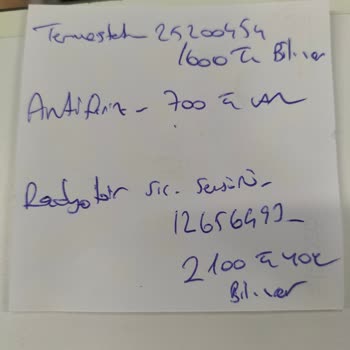 Termostat 25200454
1600 TL Bilver
Antifiriz - 700 TL var
Radyatör sıc. Sensörü -
12656493 -
2100 TL yok
Bilver